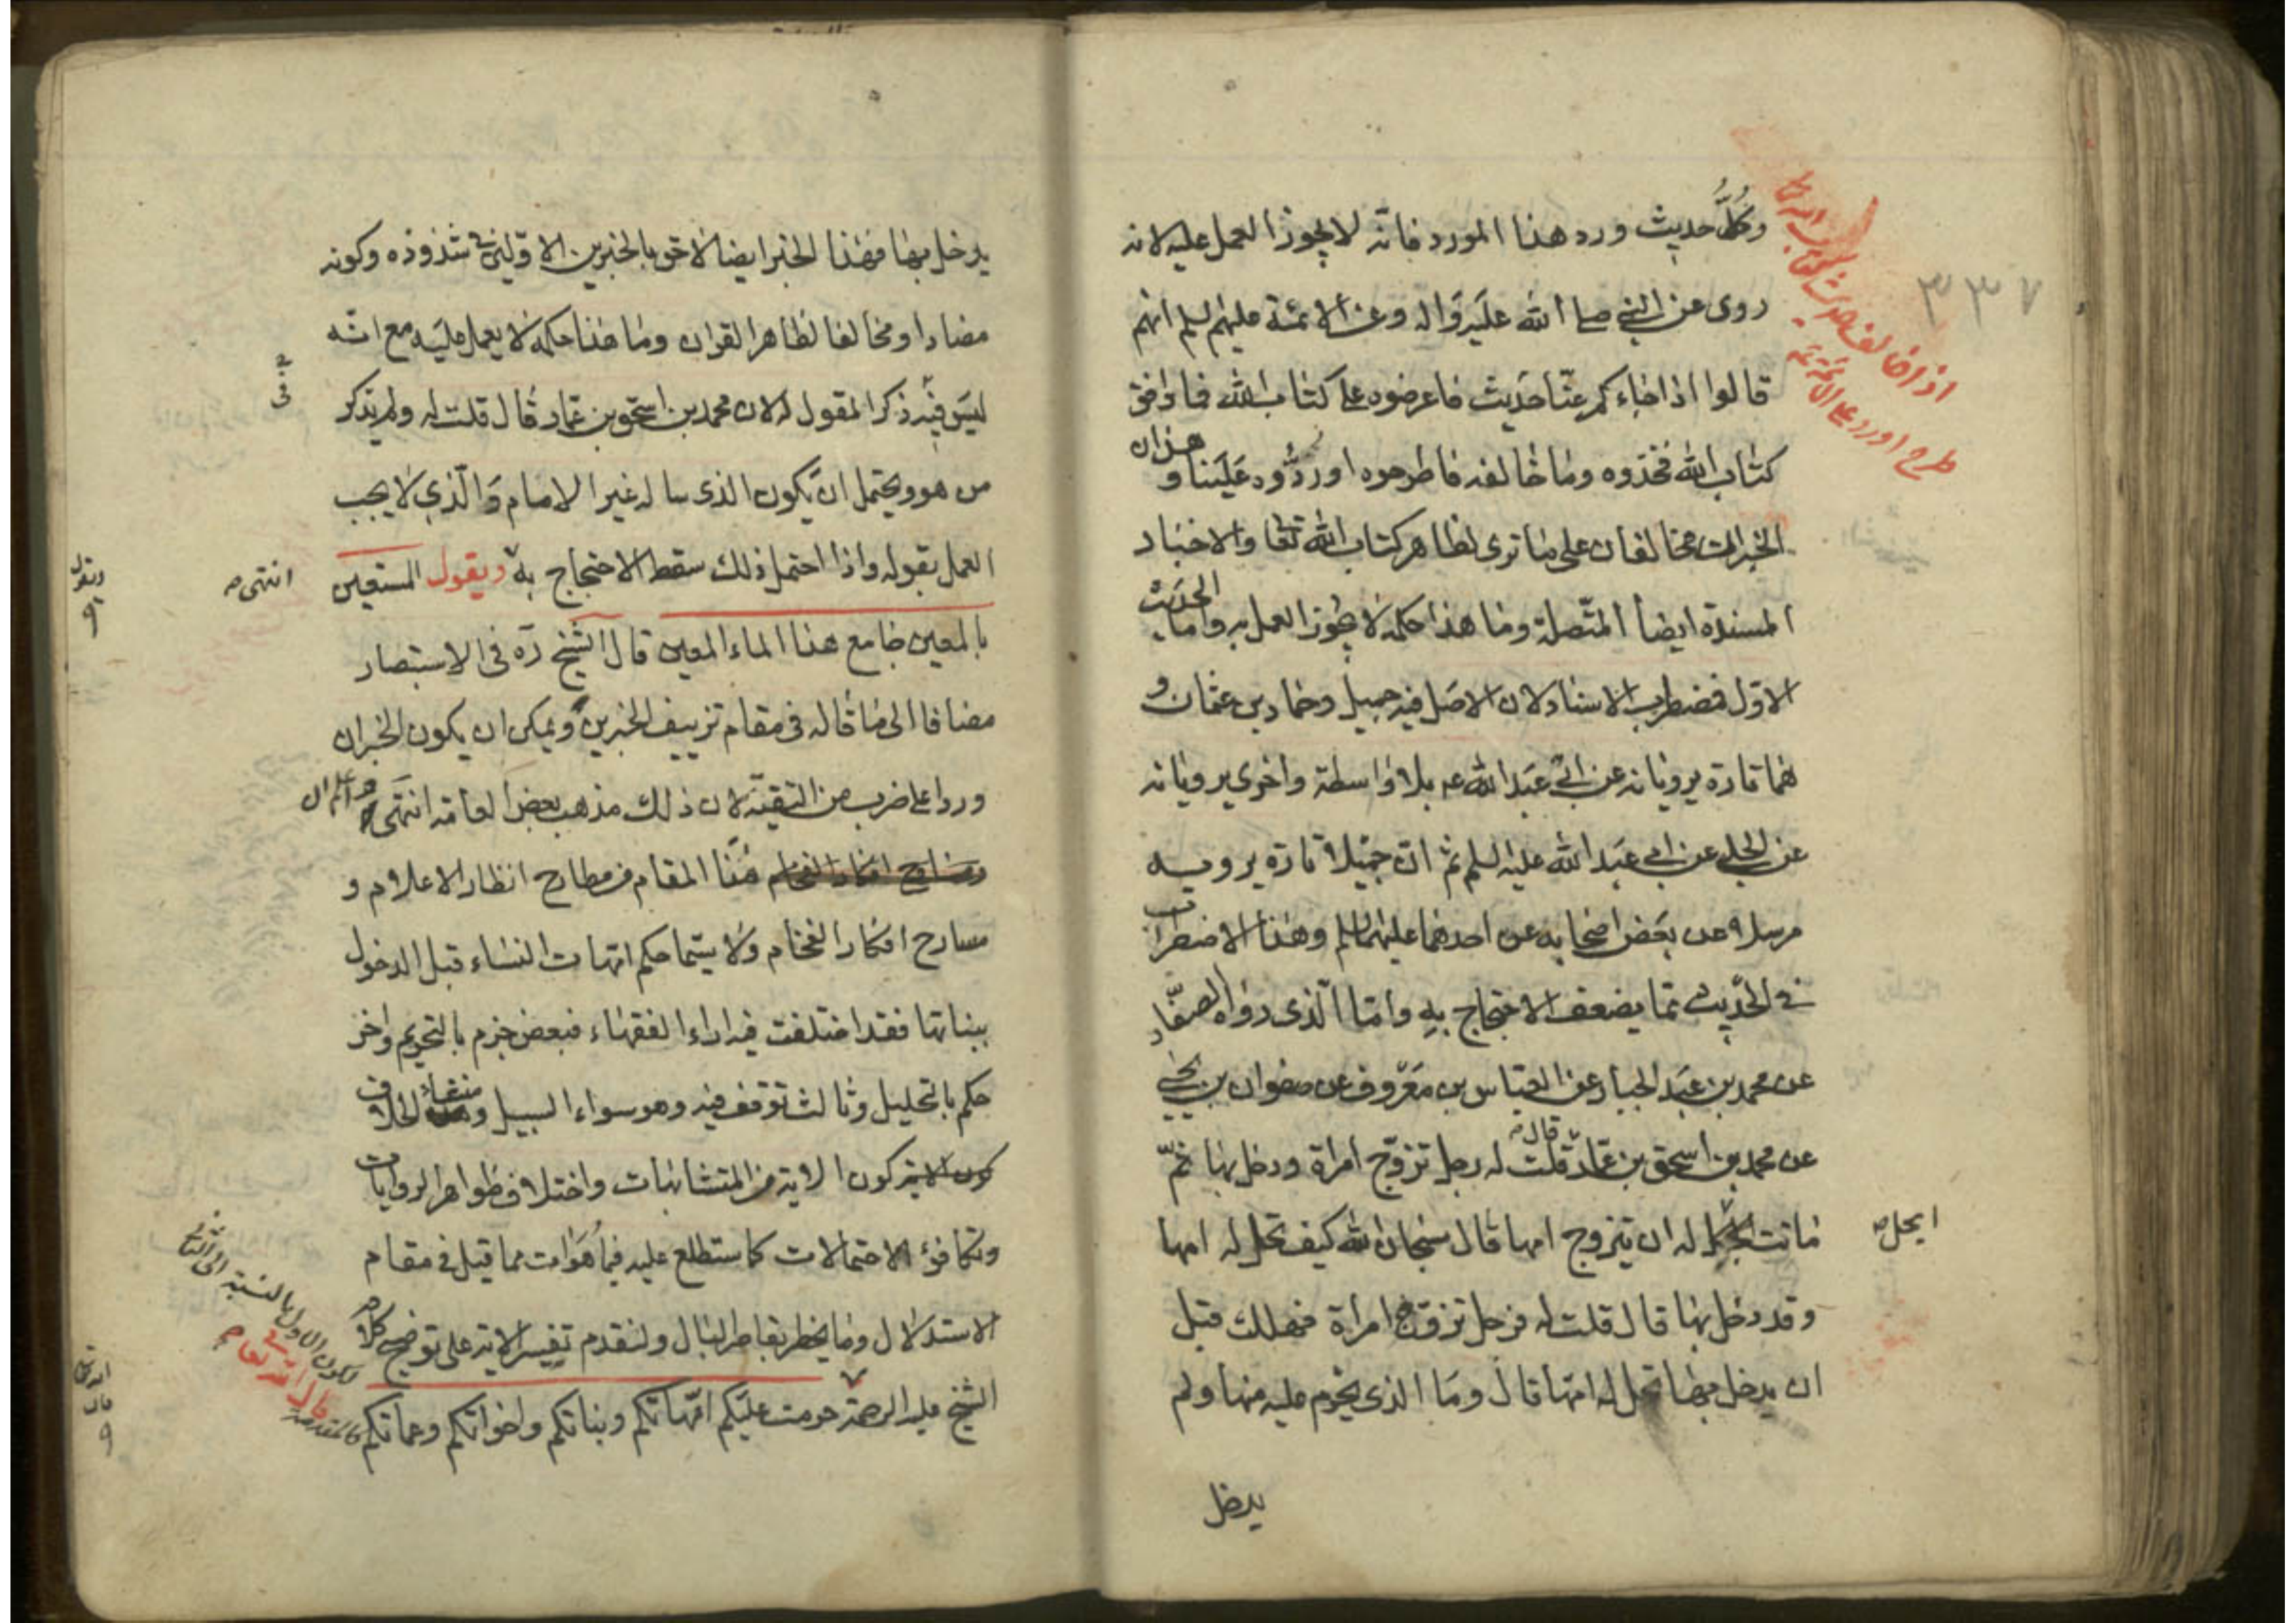 وكُلُّ حديث ورد هذا المورد فانّه لا يجوز العمل عليه لانه
روى عن النبي صلى الله عليه واله وعن الائمة عليهم السلم انهم
قالوا اذا جاءكم عنّا حديث فاعرضوه على كتاب الله فما وافق
كتاب الله فخذوه وما خالفه فاطرحوه او ردّوه علينا و هذان
الخبران مخالفان على ما ترى لظاهر كتاب الله تعا والاخبار
المسندة ايضا المتّصلة وما هذا حكمه لا يجوز العمل به واما الحديث
الاوّل فمضطرب الاسناد لان الاصل فيه جميل وحماد بن عثمان و
هما تارة يرويانه عن ابي عبد الله ع بلا واسطة واخرى يرويانه
عن الحلبي عن ابي عبد الله عليه السلم ثم انّ جميلا تارة يرويه
مرسلا عن بعض اصحابه عن احدهما عليهما السلم وهذا الاضطراب
في الحديث مما يضعف الاحتجاج به وامّا الّذى رواه الصفّار
عن محمد بن عبد الجبار عن العباس بن معروف عن صفوان بن يحيى
عن محمد بن اسحق بن عمّار قال قلت له رجل تزوّج امراة ودخل بها ثمّ
ماتت ايحل له ان يتزوج امها قال سبحان الله كيف تحل له امها
وقد دخل بها قال قلت له فرجل تزوّج امرأة فهلكت قبل
ان يدخل بها تحل له امّها قال وما الذى يحرم عليه منها ولم
يدخل
٣٣٧
اذا خالف حديث كتاب الله تعا
طرح اورد على الائمة ع
ايحل ص
يدخل بها فهذا الخبر ايضا لاحق بالخبرين الاوّلين في شذوذه وكونه
مضادا ومخالفا لظاهر القران وما هذا حكمه لا يعمل عليه مع انّه
ليس فيه ذكر المقول له لان محمد بن اسحق بن عمّار قال قلت له ولم يذكر
من هو ويحتمل ان يكون الذى ساله غير الامام والّذي لا يجب
العمل بقوله واذا احتمل ذلك سقط الاحتجاج به ويقول المستعين
بالمعين جامع هذا الماء المعين قال الشيخ ره فى الاستبصار
مضافا الى ما قاله فى مقام تزييف الخبرين ويمكن ان يكون الخبران
وردا على ضرب من التقيّة لان ذلك مذهب بعض العامّه انتهى واعلم ان
هذا المقام من مطارح انظار الاعلام و
مسارح افكار الفخام ولا سيّما حكم امّهات النساء قبل الدخول
ببناتها فقد اختلفت فيه اراء الفقهاء فبعض جزم بالتحريم واخر
حكم بالتحليل وثالث توقف فيه وهو سواء السبيل ومنشأ الخلاف
كون الاية من المتشابهات واختلاف ظواهر الروايات
وتكافؤ الاحتمالات كما ستطلع عليه فيما هو ات مما قيل فى مقام
الاستدلال وما يخطر بقاطر البال ولنقدم تفسير الاية على توضيح كلام
الشيخ عليه الرحمة حرمت عليكم امّهاتكم وبناتكم واخواتكم وعماتكم
انتهى ص
ويقول
لكون الاول بالنسبة الى الثاني
كالمقدمة
قال الله تعا